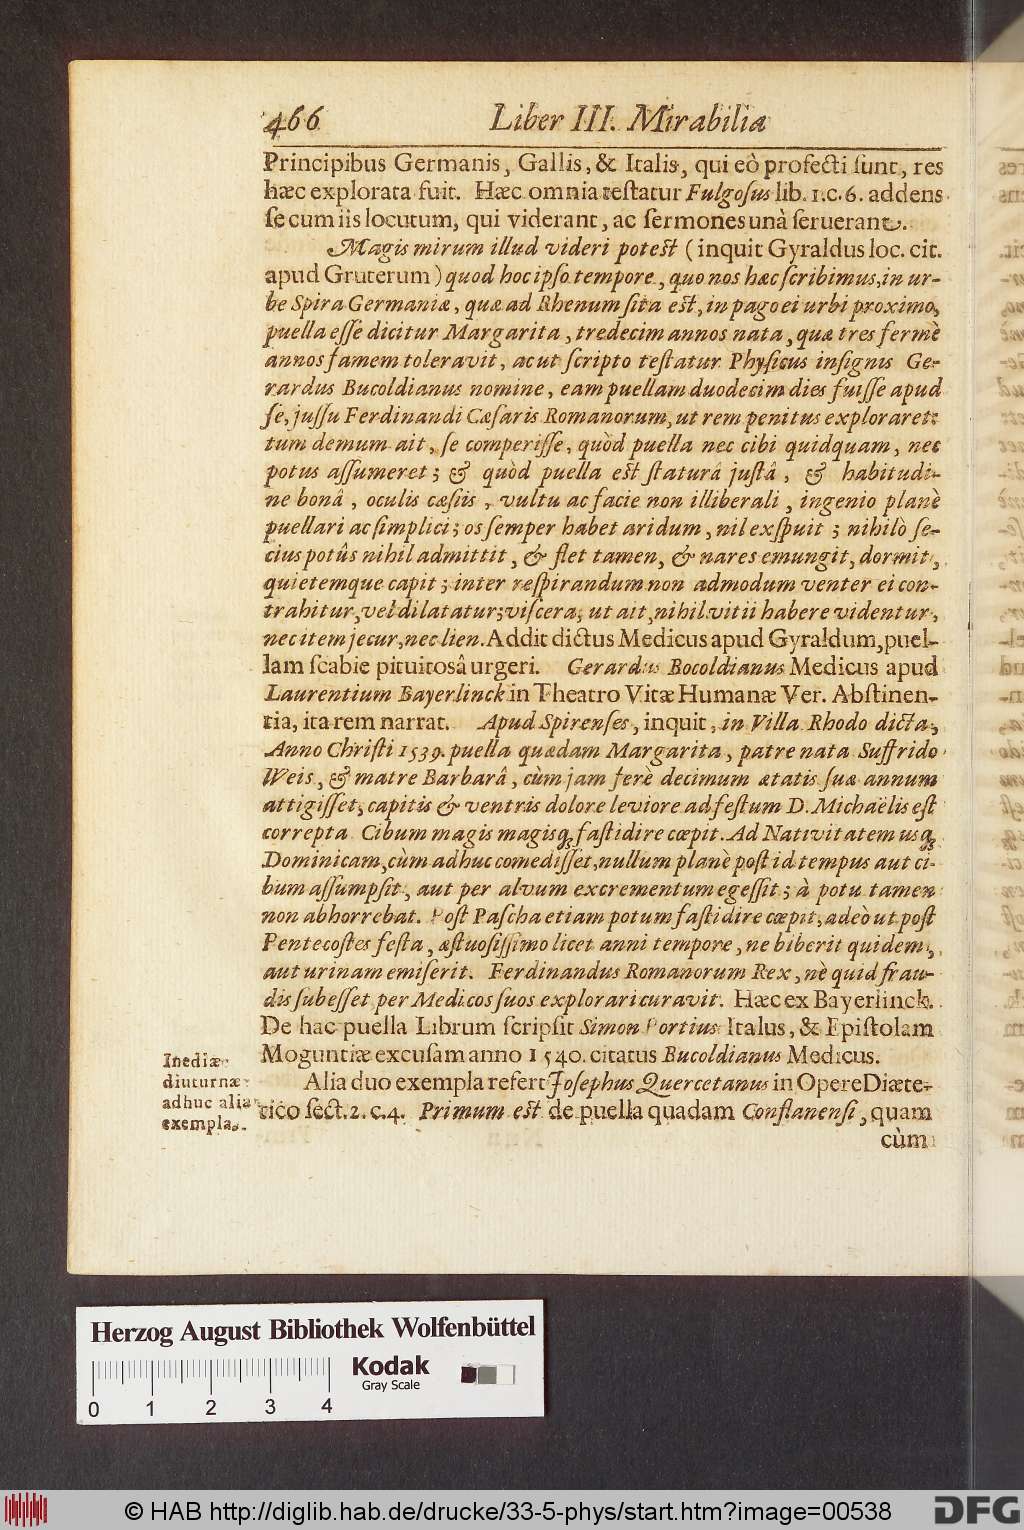 466 Liber III. Mirabilia
Principibus Germanis, Gallis, & Italis, qui eò profecti sunt, res
hæc explorata fuit. Hæc omnia testatur Fulgosus lib. 1. c. 6. addens
se cum iis locutum, qui viderant, ac sermones unà seruerant.
Magis mirum illud videri potest (inquit Gyraldus loc. cit.
apud Gruterum) quod hoc ipso tempore, quo nos hæc scribimus, in ur-
be Spira Germaniæ, quæ ad Rhenum sita est, in pago ei urbi proximo,
puella esse dicitur Margarita, tredecim annos nata, quæ tres fermè
annos famem toleravit, ac ut scripto testatur Physicus insignis Ge-
rardus Bucoldianus nomine, eam puellam duodecim dies fuisse apud
se, jussu Ferdinandi Cæsaris Romanorum, ut rem penitus exploraret:
tum demum ait, se comperisse, quòd puella nec cibi quidquam, nec
potus assumeret; & quòd puella est staturâ justâ, & habitudi-
ne bonâ, oculis cæsiis, vultu ac facie non illiberali, ingenio planè
puellari ac simplici; os semper habet aridum, nil exspuit; nihilò se-
cius potûs nihil admittit, & flet tamen, & nares emungit, dormit,
quietemque capit; inter respirandum non admodum venter ei con-
trahitur, vel dilatatur; viscera, ut ait, nihil vitii habere videntur,
nec item jecur, nec lien. Addit dictus Medicus apud Gyraldum, puel-
lam scabie pituitosâ urgeri. Gerardus Bocoldianus Medicus apud
Laurentium Bayerlinck in Theatro Vitæ Humanæ Ver. Abstinen-
tia, ita rem narrat. Apud Spirenses, inquit, in Villa Rhodo dicta,
Anno Christi 1539. puella quædam Margarita, patre nata Suffrido
Weis, & matre Barbarâ, cùm jam ferè decimum ætatis suæ annum
attigisset, capitis & ventris dolore leviore ad festum D. Michaëlis est
correpta. Cibum magis magisq; fastidire cœpit. Ad Nativitatem usq;
Dominicam, cùm adhuc comedisset, nullum planè post id tempus aut ci-
bum assumpsit, aut per alvum excrementum egessit; à potu tamen
non abhorrebat. Post Pascha etiam potum fastidire cœpit, adeò ut post
Pentecostes festa, æstuosissimo licet anni tempore, ne biberit quidem,
aut urinam emiserit. Ferdinandus Romanorum Rex, nè quid frau-
dis subesset per Medicos suos explorari curavit. Hæc ex Bayerlinck.
De hac puella Librum scripsit Simon Portius Italus, & Epistolam
Moguntiæ excusam anno 1540. citatus Bucoldianus Medicus.
Inediæ
diuturnæ
adhuc alia
exempla.
Alia duo exempla refert Josephus Quercetanus in Opere Diæte-
tico sect. 2. c. 4. Primum est de puella quadam Constanensi, quam
cùm
Herzog August Bibliothek Wolfenbüttel
Kodak
Gray Scale
0 1 2 3 4
© HAB http://diglib.hab.de/drucke/33-5-phys/start.htm?image=00538
DFG